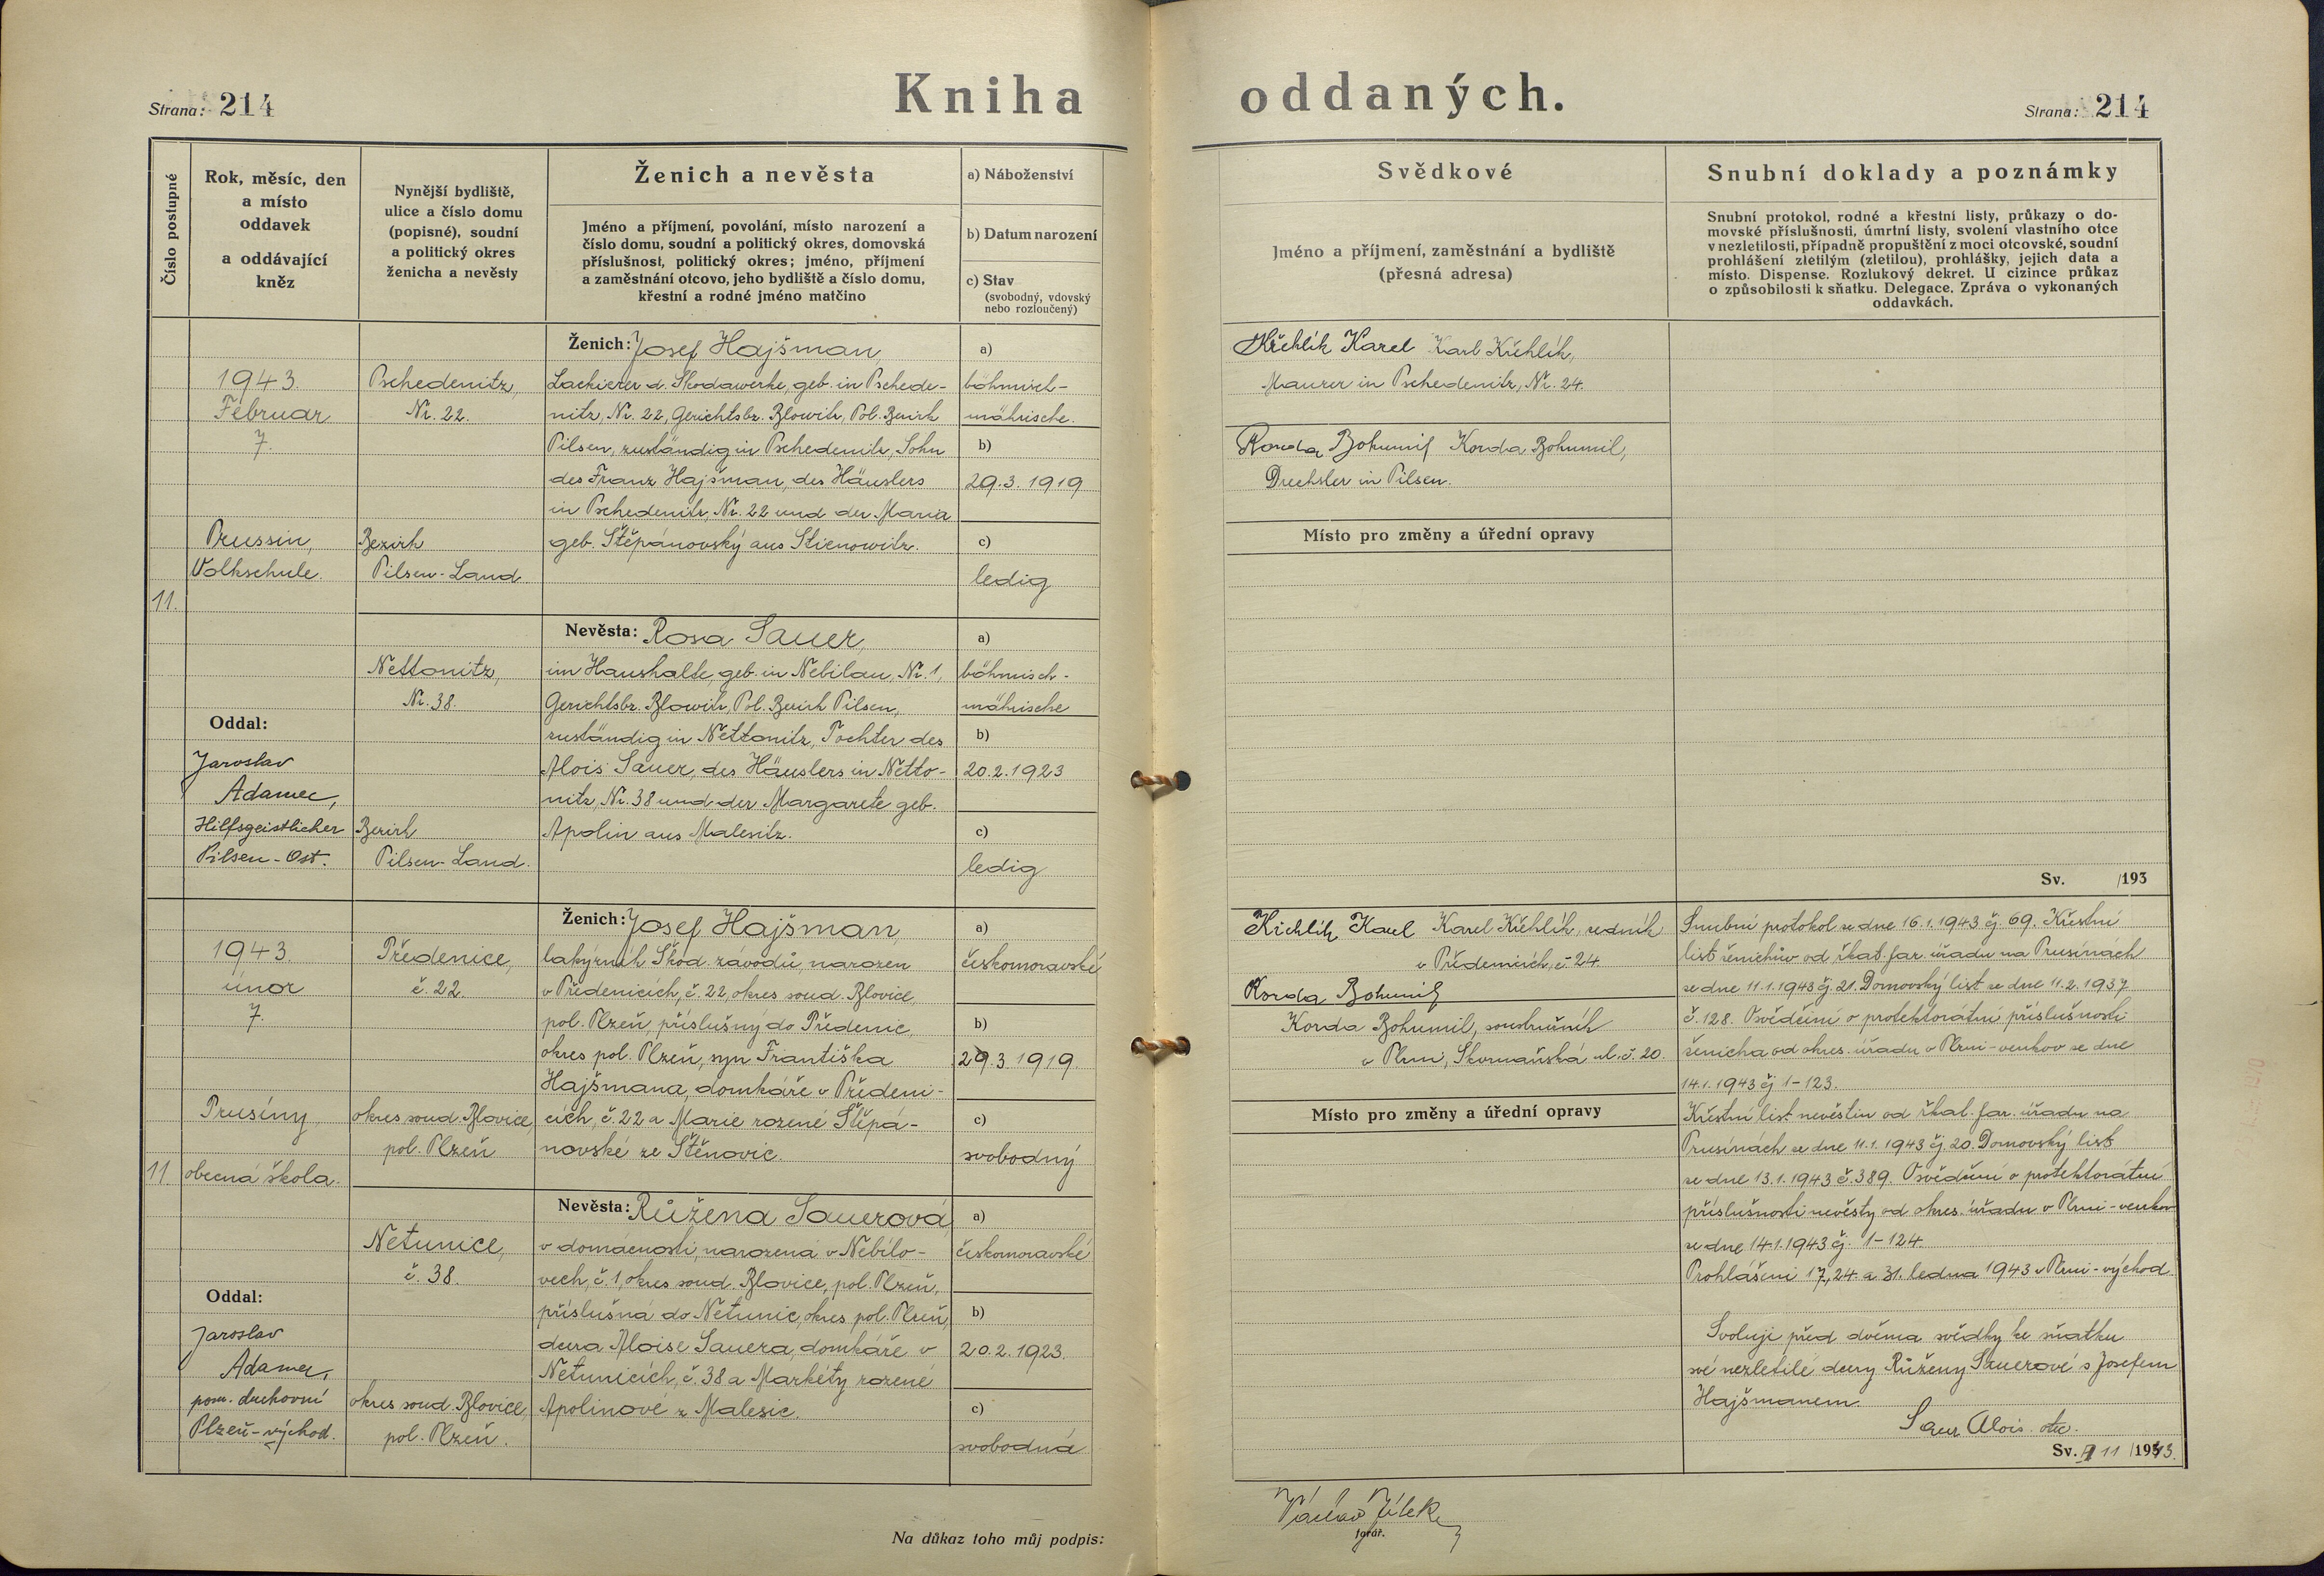 Strana: 214
Kniha oddaných.
Strana: 214
Číslo postupné
Rok, měsíc, den
a místo
oddavek
a oddávající
kněz
Nynější bydliště,
ulice a číslo domu
(popisné), soudní
a politický okres
ženicha a nevěsty
Ženich a nevěsta
Jméno a příjmení, povolání, místo narození a
číslo domu, soudní a politický okres, domovská
příslušnost, politický okres; jméno, příjmení
a zaměstnání otcovo, jeho bydliště a číslo domu,
křestní a rodné jméno matčino
a) Náboženství
b) Datum narození
c) Stav
(svobodný, vdovský
nebo rozloučený)
Svědkové
Jméno a příjmení, zaměstnání a bydliště
(přesná adresa)
Snubní doklady a poznámky
Snubní protokol, rodné a křestní listy, průkazy o do-
movské příslušnosti, úmrtní listy, svolení vlastního otce
v nezletilosti, případně propuštění z moci otcovské, soudní
prohlášení zletilým (zletilou), prohlášky, jejich data a
místo. Dispense. Rozlukový dekret. U cizince průkaz
o způsobilosti k sňatku. Delegace. Zpráva o vykonaných
oddavkách.
11.
1943.
Februar
7.
Prussin,
Volkschule.
Oddal:
Jaroslav
Adamec,
Hilfsgeistlicher
Pilsen-Ost.
Pschedenitz,
Nr. 22.
Bezirk
Pilsen-Land
Nettonitz,
Nr. 38.
Bezirk
Pilsen-Land.
Ženich: Josef Hajšman,
Lackierer d. Skodawerke, geb. in Pschede-
nitz, Nr. 22, Gerichtsbz. Blowitz, Pol. Bezirk
Pilsen, zuständig in Pschedenitz, Sohn
des Franz Hajšman, des Häuslers
in Pschedenitz, Nr. 22 und der Maria
geb. Štěpánovský aus Stienowitz.
a)
böhmisch-
mährische.
b)
29.3.1919
c)
ledig
Nevěsta: Rosa Sauer,
im Haushalte, geb. in Nebilau, Nr. 1,
Gerichtsbz. Blowitz, Pol. Bezirk Pilsen,
zuständig in Nettonitz, Tochter des
Alois Sauer, des Häuslers in Netto-
nitz Nr. 38 und der Margarete geb.
Apolin aus Malesitz.
a)
böhmisch-
mährische
b)
20.2.1923
c)
ledig
Křehlík Karel Karl Křehlík,
Maurer in Pschedenitz, Nr. 24.
Korda Bohumil Korda Bohumil,
Drechsler in Pilsen.
Místo pro změny a úřední opravy
Sv. /193
11.
1943.
únor
7.
Prusíny,
obecná škola.
Oddal:
Jaroslav
Adamec,
pom. duchovní
Plzeň-východ.
Předenice,
č. 22.
okres soud. Blovice,
pol. Plzeň
Netunice,
č. 38.
okres soud. Blovice,
pol. Plzeň.
Ženich: Josef Hajšman,
lakýrník Škod. závodů, narozen
v Předenicích, č. 22, okres soud. Blovice,
pol. Plzeň, příslušný do Předenic,
okres pol. Plzeň, syn Františka
Hajšmana, domkáře v Předeni-
cích, č. 22 a Marie rozené Štěpá-
novské ze Štěnovic.
a)
českomoravské
b)
29.3.1919.
c)
svobodný
Nevěsta: Růžena Sauerová,
v domácnosti, narozená v Nebílo-
vech, č. 1, okres soud. Blovice, pol. Plzeň,
příslušná do Netunic, okres pol. Plzeň,
dcera Aloise Sauera, domkáře v
Netunicích, č. 38 a Markéty rozené
Apolinové z Malesic.
a)
českomoravské
b)
20.2.1923.
c)
svobodná
Křehlík Karel Karel Křehlík, zedník
v Předenicích, č. 24.
Korda Bohumil
Korda Bohumil, soustružník
v Plzni, Skvrňanská ul. č. 20.
Místo pro změny a úřední opravy
Snubní protokol ze dne 16.1.1943 čj. 69. Křestní
list ženichův od řkat. far. úřadu na Prusínách
ze dne 11.1.1943 čj. 21. Domovský list ze dne 11.2.1937
č. 128. Osvědčení o protektorátní příslušnosti
ženicha od okres. úřadu v Plzni-venkov ze dne
14.1.1943 čj 1-123.
Křestní list nevěstin od řkat. far. úřadu na
Prusínách ze dne 11.1.1943 čj 20. Domovský list
ze dne 13.1.1943 č. 389. Osvědčení o protektorátní
příslušnosti nevěsty od okres. úřadu v Plzni-venkov
ze dne 14.1.1943 čj. 1-124.
Prohlášení 17., 24. a 31. ledna 1943 v Plzni-východ.
Svoluji před dvěma svědky ke sňatku
své nezletilé dcery Růženy Sauerové s Josefem
Hajšmanem.
Sauer Alois. otec.
Sv. 11 /1943.
Na důkaz toho můj podpis:
Václav Jílek
farář.